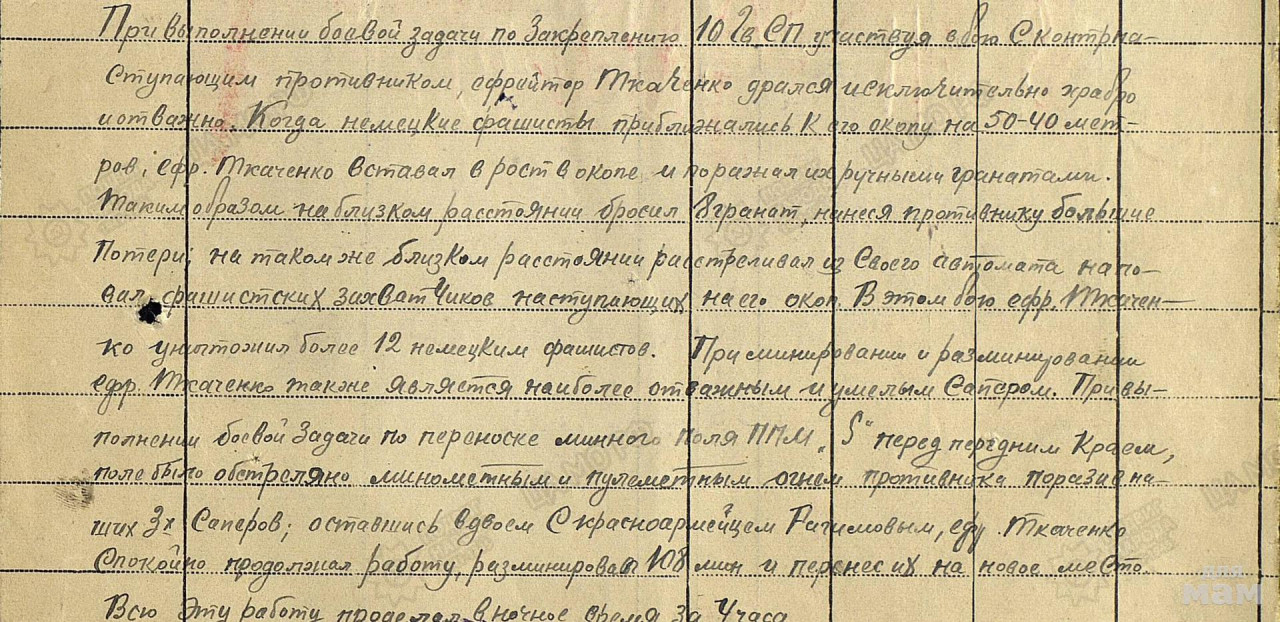 При выполнении боевой задачи по Закреплению 10 Гв. СП участвуя в бою с контрна-
ступающим противником, ефрейтор Ткаченко дрался исключительно храбро
и отважно. Когда немецкие фашисты приближались к его окопу на 50-40 мет-
ров, ефр. Ткаченко вставал в рост в окопе и поражал их ручными гранатами.
Таким образом на близком расстоянии бросил 8 гранат, нанеся противнику большие
Потери; на таком же близком расстоянии расстреливал из своего автомата напо-
вал, фашистских захватчиков наступающих на его окоп. В этом бою ефр. Ткачен-
ко уничтожил более 12 немецким фашистов. При минировании и разминировании
ефр. Ткаченко также является наиболее отважным и умелым Сапером. При вы-
полнении боевой Задачи по переноске минного поля ППМ "S" перед передним Краем,
поле было обстреляно минометным и пулеметным огнем противника поразив на-
ших 3х Саперов; оставшись вдвоем с красноармейцем Рагимовым, ефр. Ткаченко
Спокойно продолжал работу, разминировал 108 мин и перенес их на новое место.
Всю эту работу проделал в ночное время за 4 часа
для
мам